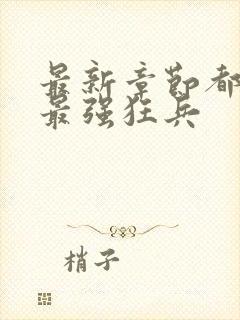 最新章节都
最强狂兵
梢子